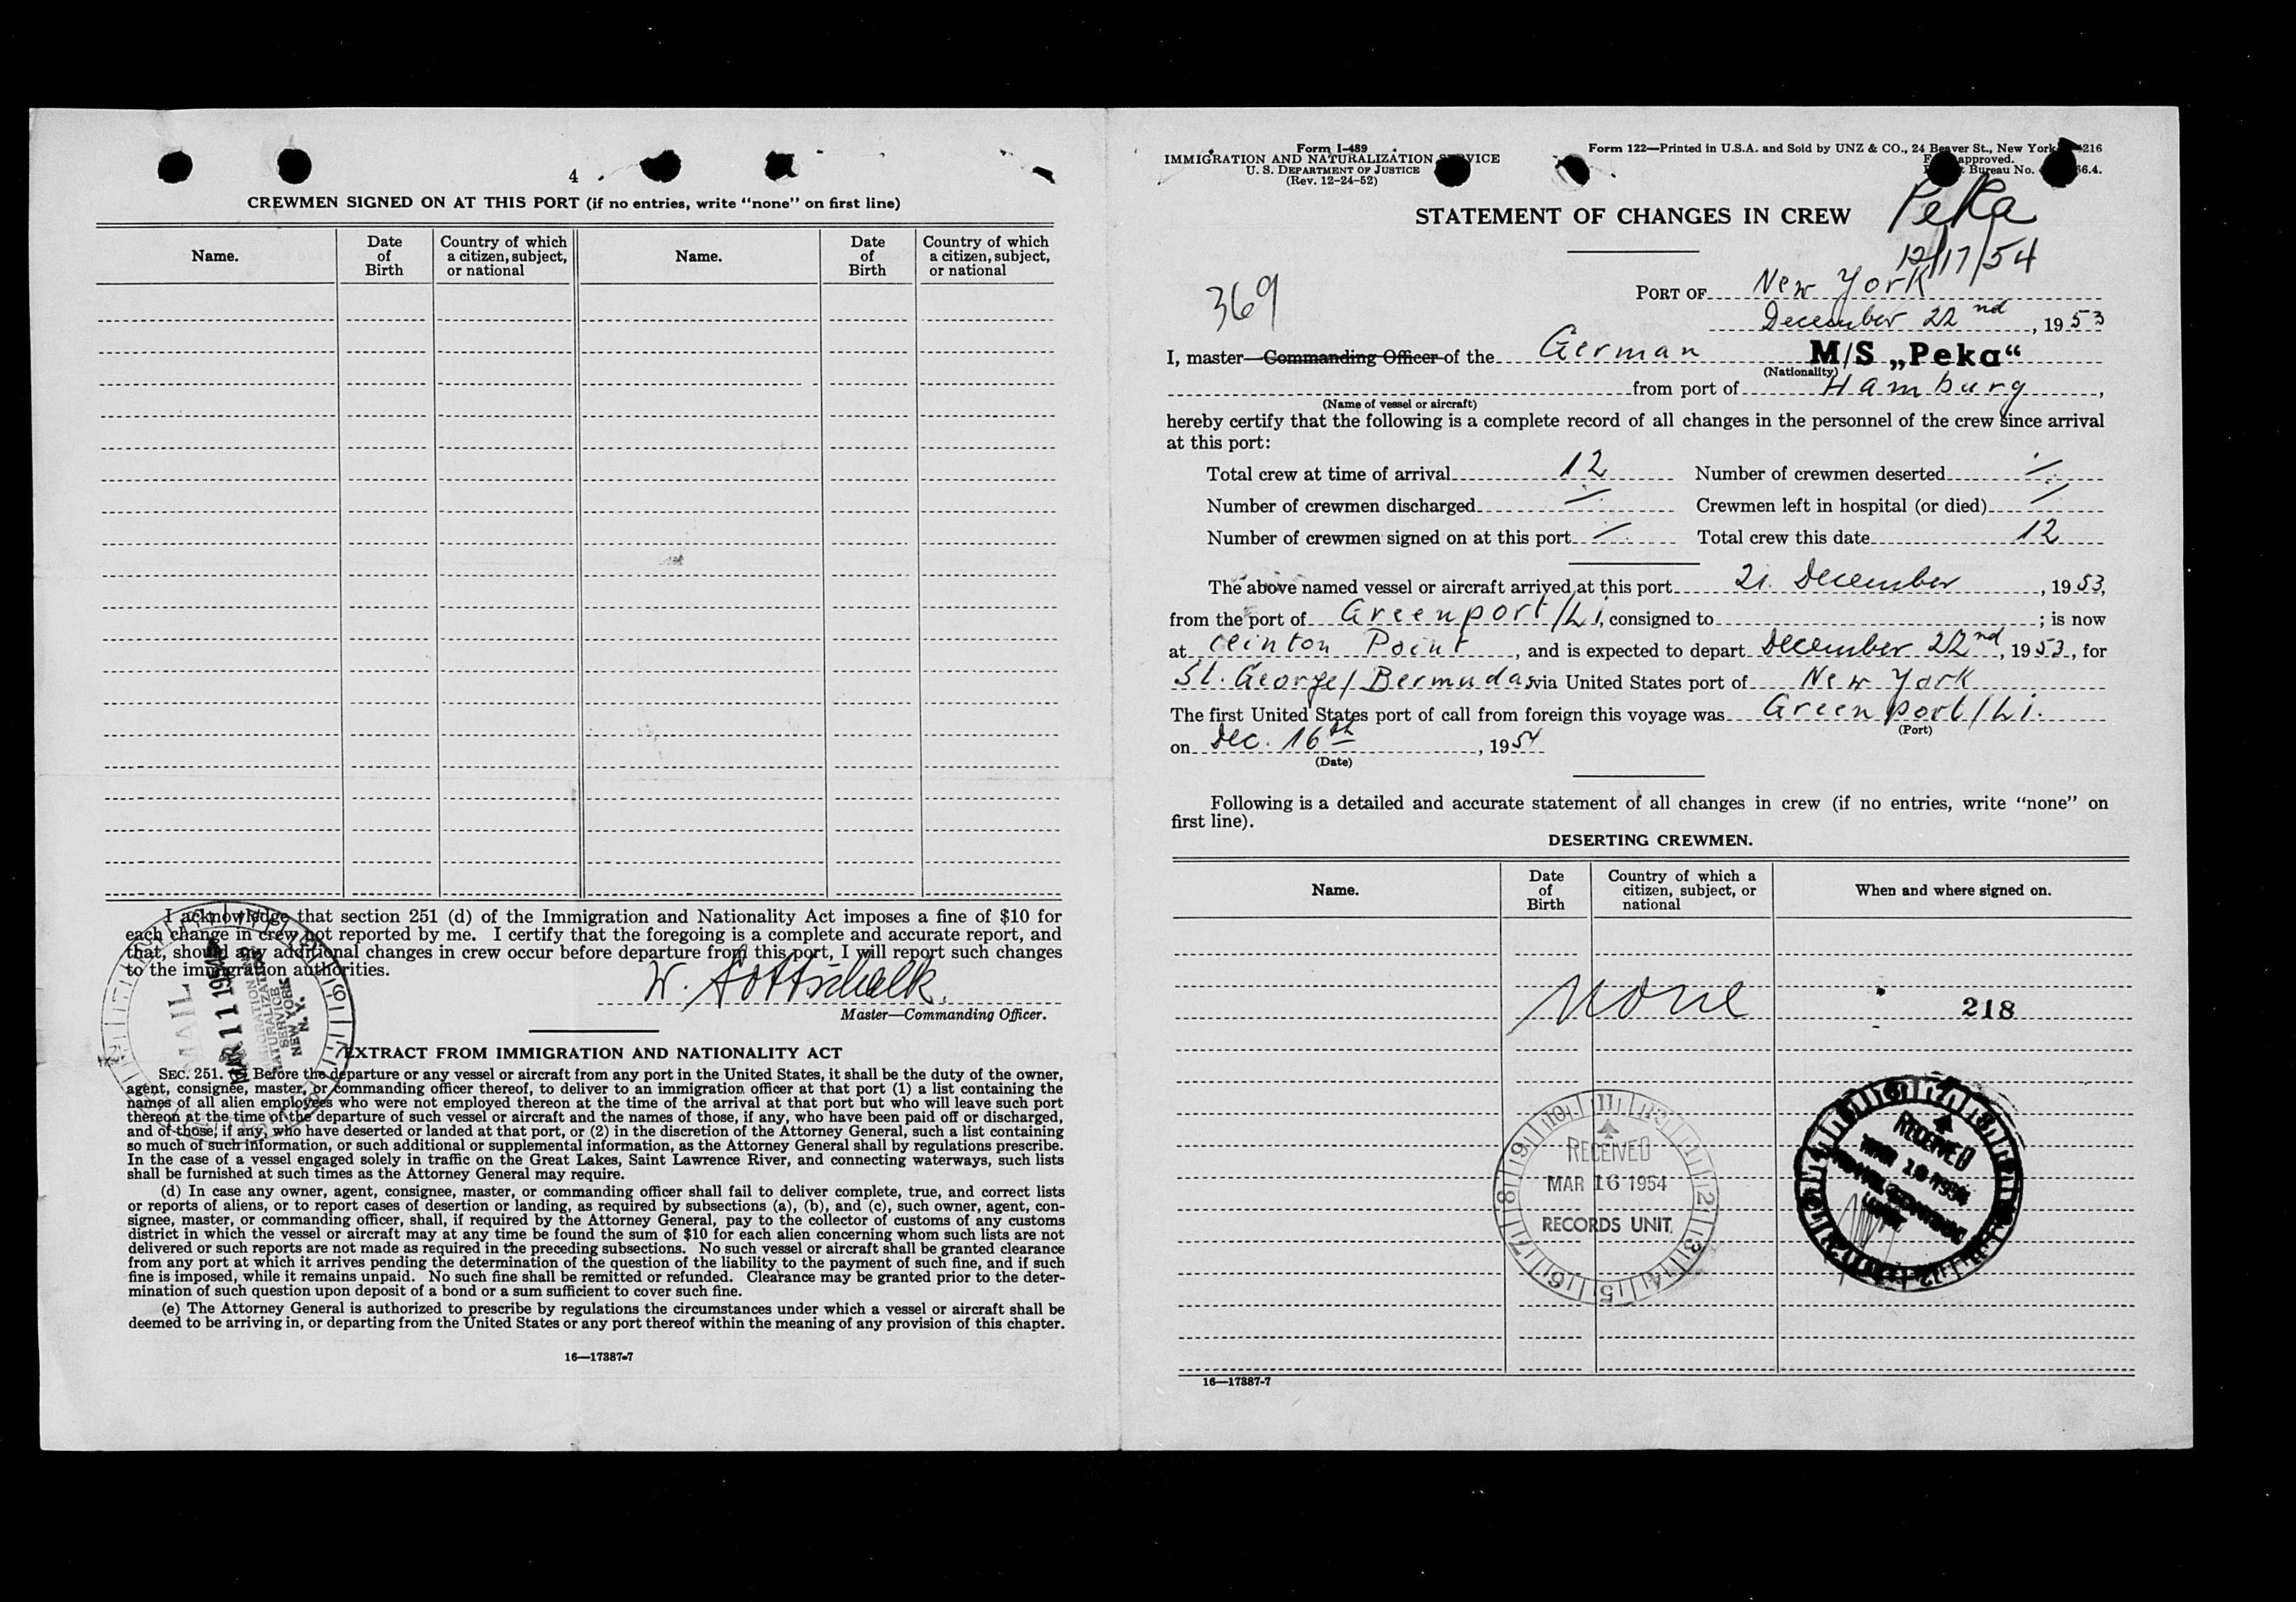 4
CREWMEN SIGNED ON AT THIS PORT (if no entries, write “none” on first line)
Name.
Date of Birth
Country of which a citizen, subject, or national
Name.
Date of Birth
Country of which a citizen, subject, or national
I acknowledge that section 251 (d) of the Immigration and Nationality Act imposes a fine of $10 for
each change in crew not reported by me. I certify that the foregoing is a complete and accurate report, and
that, should any additional changes in crew occur before departure from this port, I will report such changes
to the immigration authorities.
W. Gottschalk.
Master—Commanding Officer.
MAIL
MAR 11 1954
IMMIGRATION AND
NATURALIZATION
SERVICE
NEW YORK
N. Y.
EXTRACT FROM IMMIGRATION AND NATIONALITY ACT
SEC. 251. Before the departure or any vessel or aircraft from any port in the United States, it shall be the duty of the owner,
agent, consignee, master, or commanding officer thereof, to deliver to an immigration officer at that port (1) a list containing the
names of all alien employees who were not employed thereon at the time of the arrival at that port but who will leave such port
thereon at the time of the departure of such vessel or aircraft and the names of those, if any, who have been paid off or discharged,
and of those, if any, who have deserted or landed at that port, or (2) in the discretion of the Attorney General, such a list containing
so much of such information, or such additional or supplemental information, as the Attorney General shall by regulations prescribe.
In the case of a vessel engaged solely in traffic on the Great Lakes, Saint Lawrence River, and connecting waterways, such lists
shall be furnished at such times as the Attorney General may require.
(d) In case any owner, agent, consignee, master, or commanding officer shall fail to deliver complete, true, and correct lists
or reports of aliens, or to report cases of desertion or landing, as required by subsections (a), (b), and (c), such owner, agent, con-
signee, master, or commanding officer, shall, if required by the Attorney General, pay to the collector of customs of any customs
district in which the vessel or aircraft may at any time be found the sum of $10 for each alien concerning whom such lists are not
delivered or such reports are not made as required in the preceding subsections. No such vessel or aircraft shall be granted clearance
from any port at which it arrives pending the determination of the question of the liability to the payment of such fine, and if such
fine is imposed, while it remains unpaid. No such fine shall be remitted or refunded. Clearance may be granted prior to the deter-
mination of such question upon deposit of a bond or a sum sufficient to cover such fine.
(e) The Attorney General is authorized to prescribe by regulations the circumstances under which a vessel or aircraft shall be
deemed to be arriving in, or departing from the United States or any port thereof within the meaning of any provision of this chapter.
16—17387-7
Form I-489
IMMIGRATION AND NATURALIZATION SERVICE
U. S. DEPARTMENT OF JUSTICE
(Rev. 12-24-52)
Form 122—Printed in U.S.A. and Sold by UNZ & CO., 24 Beaver St., New York 4216
approved.
Bureau No. 66.4.
STATEMENT OF CHANGES IN CREW
Peka
12/17/54
369
PORT OF New York
December 22nd, 1953
I, master—Commanding Officer of the German M/S „Peka“
(Nationality)
from port of Hamburg,
(Name of vessel or aircraft)
hereby certify that the following is a complete record of all changes in the personnel of the crew since arrival
at this port:
Total crew at time of arrival 12 Number of crewmen deserted ./.
Number of crewmen discharged ./. Crewmen left in hospital (or died) ./.
Number of crewmen signed on at this port ./. Total crew this date 12
The above named vessel or aircraft arrived at this port 21. December, 1953,
from the port of Greenport/Li, consigned to ; is now
at Clinton Point, and is expected to depart December 22nd, 1953, for
St. George/Bermudas via United States port of New York
The first United States port of call from foreign this voyage was Greenport/Li.
(Port)
on Dec. 16th, 1954
(Date)
Following is a detailed and accurate statement of all changes in crew (if no entries, write “none” on
first line).
DESERTING CREWMEN.
Name.
Date of Birth
Country of which a citizen, subject, or national
When and where signed on.
none
218
RECEIVED
MAR 16 1954
RECORDS UNIT
RECEIVED
16—17387-7